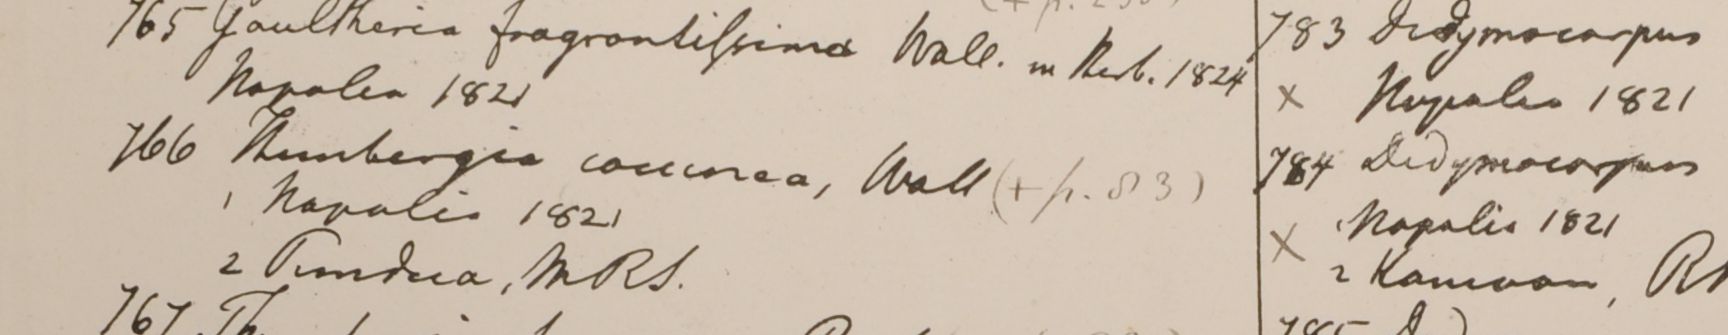 765 Gaultheria fragrantissima Wall. in Herb. 1824
Napalia 1821
766 Thunbergia coccinea, Wall (+ p. 83)
1 Napalia 1821
2 Pundua, MRS.
767
783 Didymocarpus
x Napalia 1821
784 Didymocarpus
1 Napalia 1821
x 2 Kamoon, R
785 D